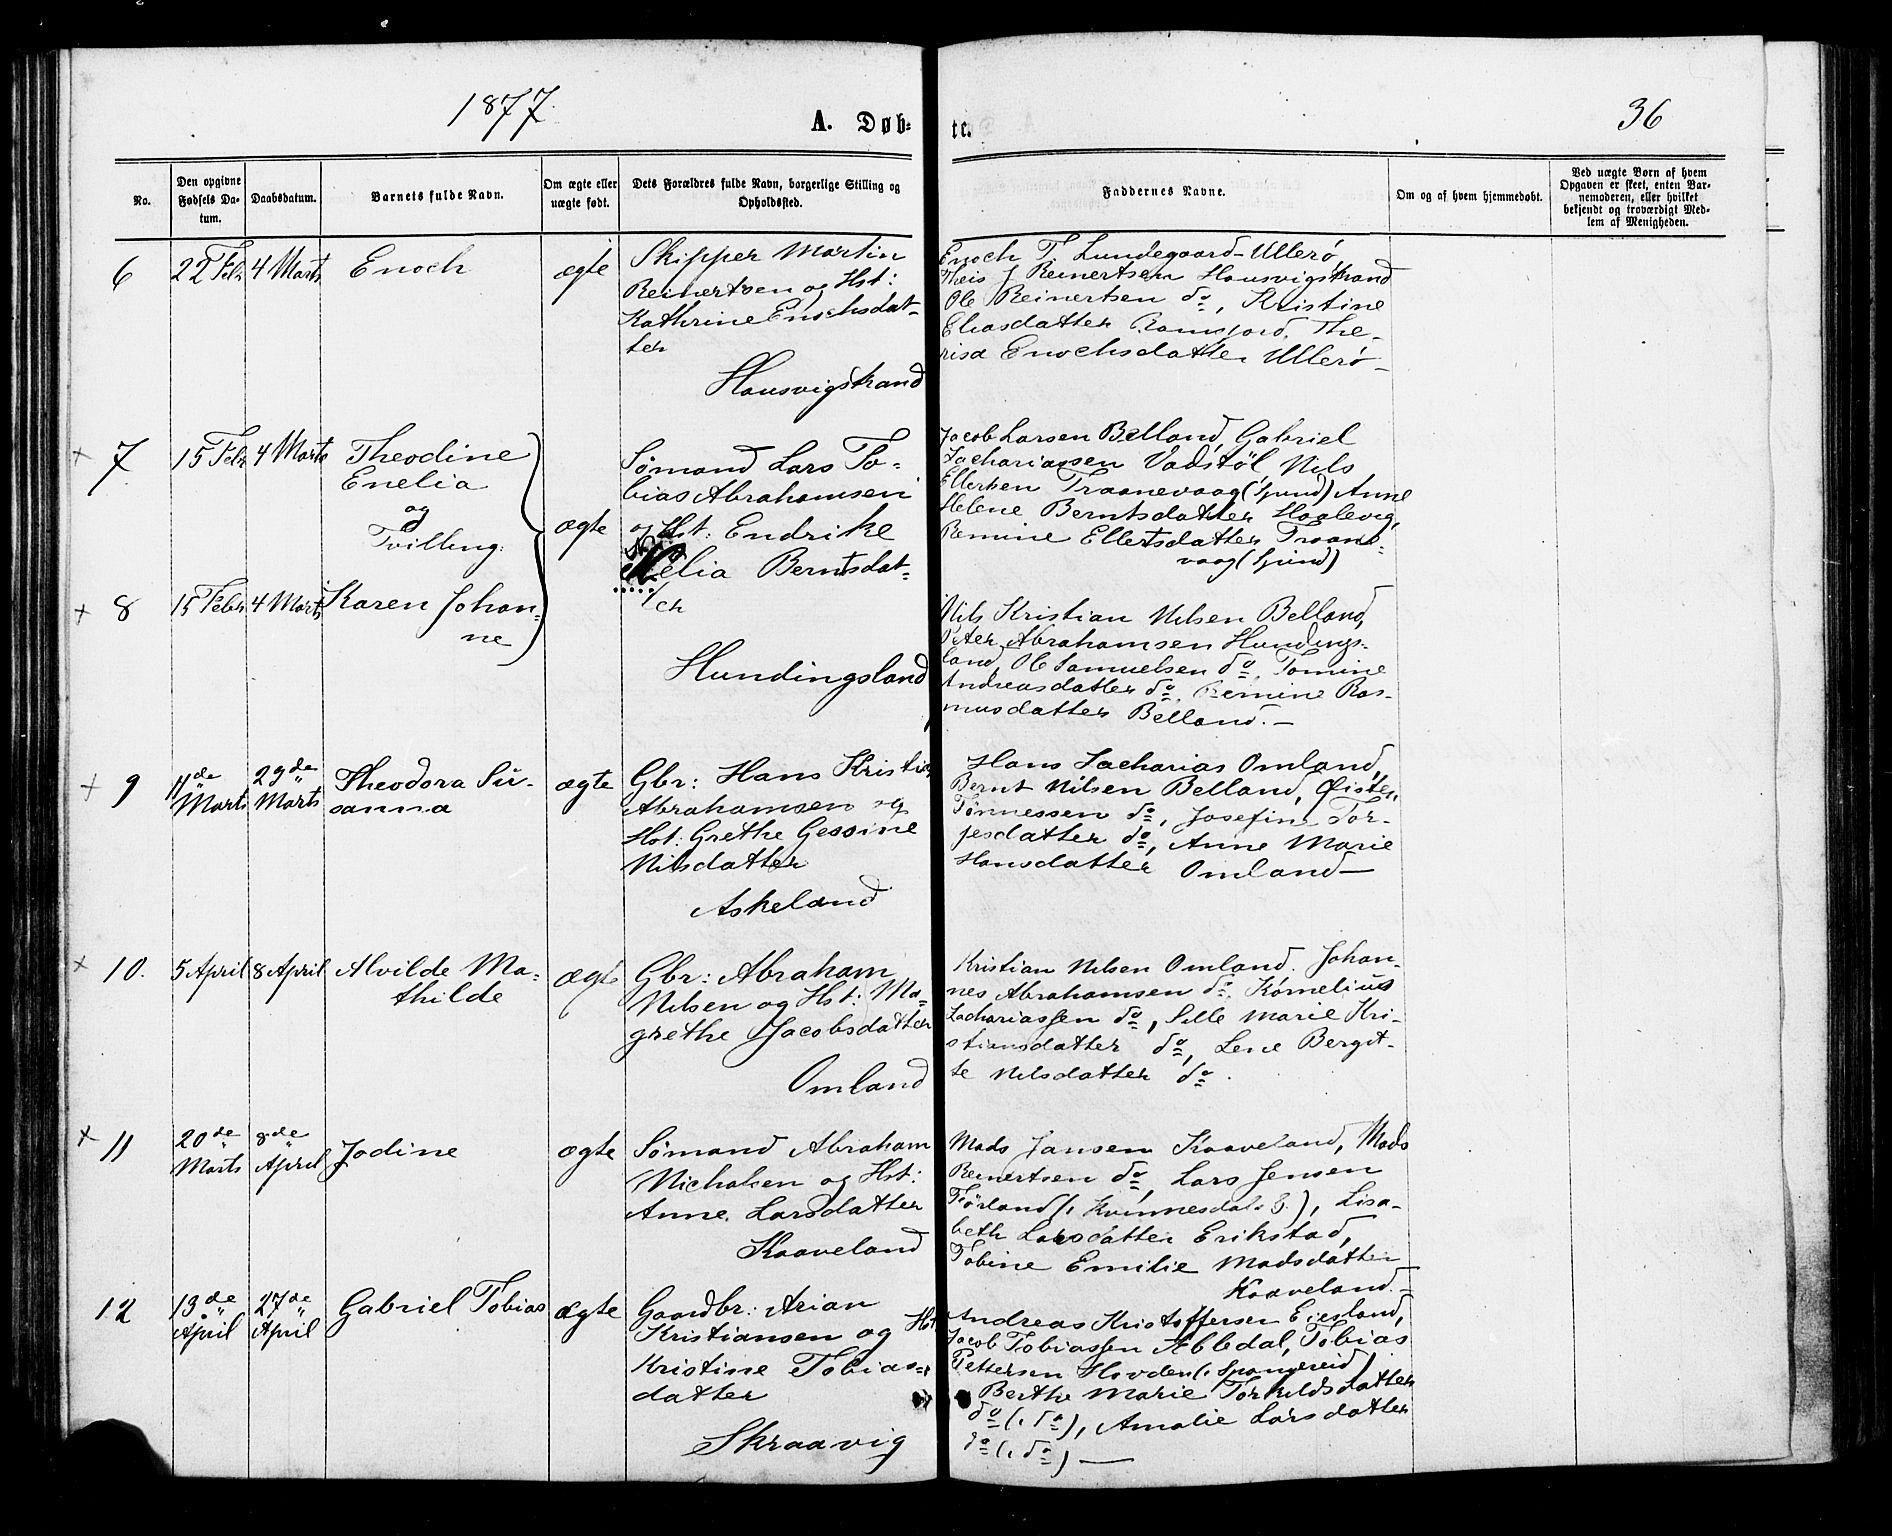 1877.
A. Døb=
te.
36
No.
Den opgivne Fødsels Da-tum.
Daabsdatum.
Barnets fulde Navn.
Om ægte eller uægte født.
Dets Forældres fulde Navn, borgerlige Stilling og Opholdssted.
Faddernes Navne.
Om og af hvem hjemmedøbt.
Ved uægte Børn af hvem Opgaven er skeet, enten Bar-nemoderen, eller hvilket bekjendt og troværdigt Med-lem af Menigheden.
6
22 Febr
4 Marts
Enoch
ægte
Skipper Martin
Reinertsen og Hst:
Kathrine Enochsdat-
ter
Hausvigstrand
Enoch T. Lundegaard-Ullerø
Theis J Reinertsen Hausvigstrand
Ole Reinertsen do, Kristine
Eliasdatter Ramsjord, The-
risa Enochsdatter Ullerø-
+ 7
15 Febr
4 Marts
Theodine
Enelia
og
Tvilling:
ægte
Sømand Lars To-
bias Abrahamsen
og Hst: Endrike
Nelia Berntsdat-
ter
Hundingsland
Jacob Larsen Belland, Gabriel
Zachariassen Vadstøl Nils
Ellertsen Traanevaag (Spind) Anne
Helene Berntsdatter Haalevig,
Remine Ellertsdatter Traane-
vaag (Spind)
+ 8
15 Febr
4 Marts
Karen Johan-
ne
Nils Kristian Nilsen Belland,
Peter Abrahamsen Hundings-
land, Ole Samuelsen do, Tomine
Andreasdatter do, Remine Ras-
musdatter Belland.-
+ 9
11de
Marts
29de
Marts
Theodora Su-
sanna
ægte
Gbr: Hans Kristian
Abrahamsen og
Hst: Grethe Gessine
Nilsdatter
Askeland
Hans Zacharias Omland,
Bernt Nilsen Belland, Øisten
Tønnessen do, Josefine Tor-
jesdatter do, Anne Marie
Hansdatter Omland-
+ 10.
5 April
8 April
Alvilde Ma-
thilde
ægte
Gbr: Abraham
Nilsen og Hst: Ma-
grethe Jacobsdatter
Omland
Kristian Nilsen Omland. Johan-
nes Abrahamsen do, Kornelius
Zachariassen do, Sille Marie Kri-
stiansdatter do, Lene Bergit-
te Nilsdatter do.
+ 11
20de
Marts
8de
April
Jodine
ægte
Sømand Abraham
Michalsen og Hst:
Anne Larsdatter
Kaaveland
Mads Jansen Kaaveland, Mads
Reinertsen do, Lars Jensen
Førland (i Kvinnesdal), Lisa-
beth Larsdatter Erikstad,
Tobine Emilie Madsdatter
Kaaveland.-
12
13de
April
27de
April
Gabriel Tobias
ægte
Gaardbr: Arian
Kristiansen og Hst
Kristine Tobias-
datter
Skraavig
Andreas Kristoffersen Eiesland,
Jacob Tobiassen Abledal, Tobias
Pettersen Hovden (i Spangereid)
Berthe Marie Torkildsdatter
do (i do), Amalie Larsdatter
do (i do) -